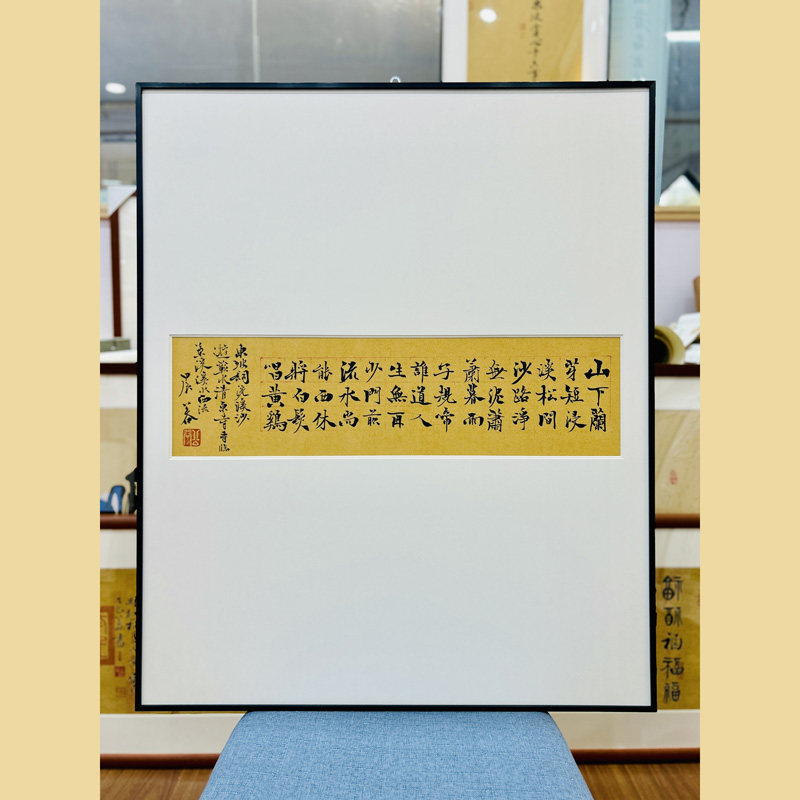 山下蘭
芽短浸
溪松間
沙路淨
無泥蕭
蕭暮雨
子規啼
誰道人
生無再
少門前
流水尚
能西休
將白髮
唱黃鷄
東坡詞浣溪沙
遊蘄水清泉寺寺臨
蘭溪溪水西流